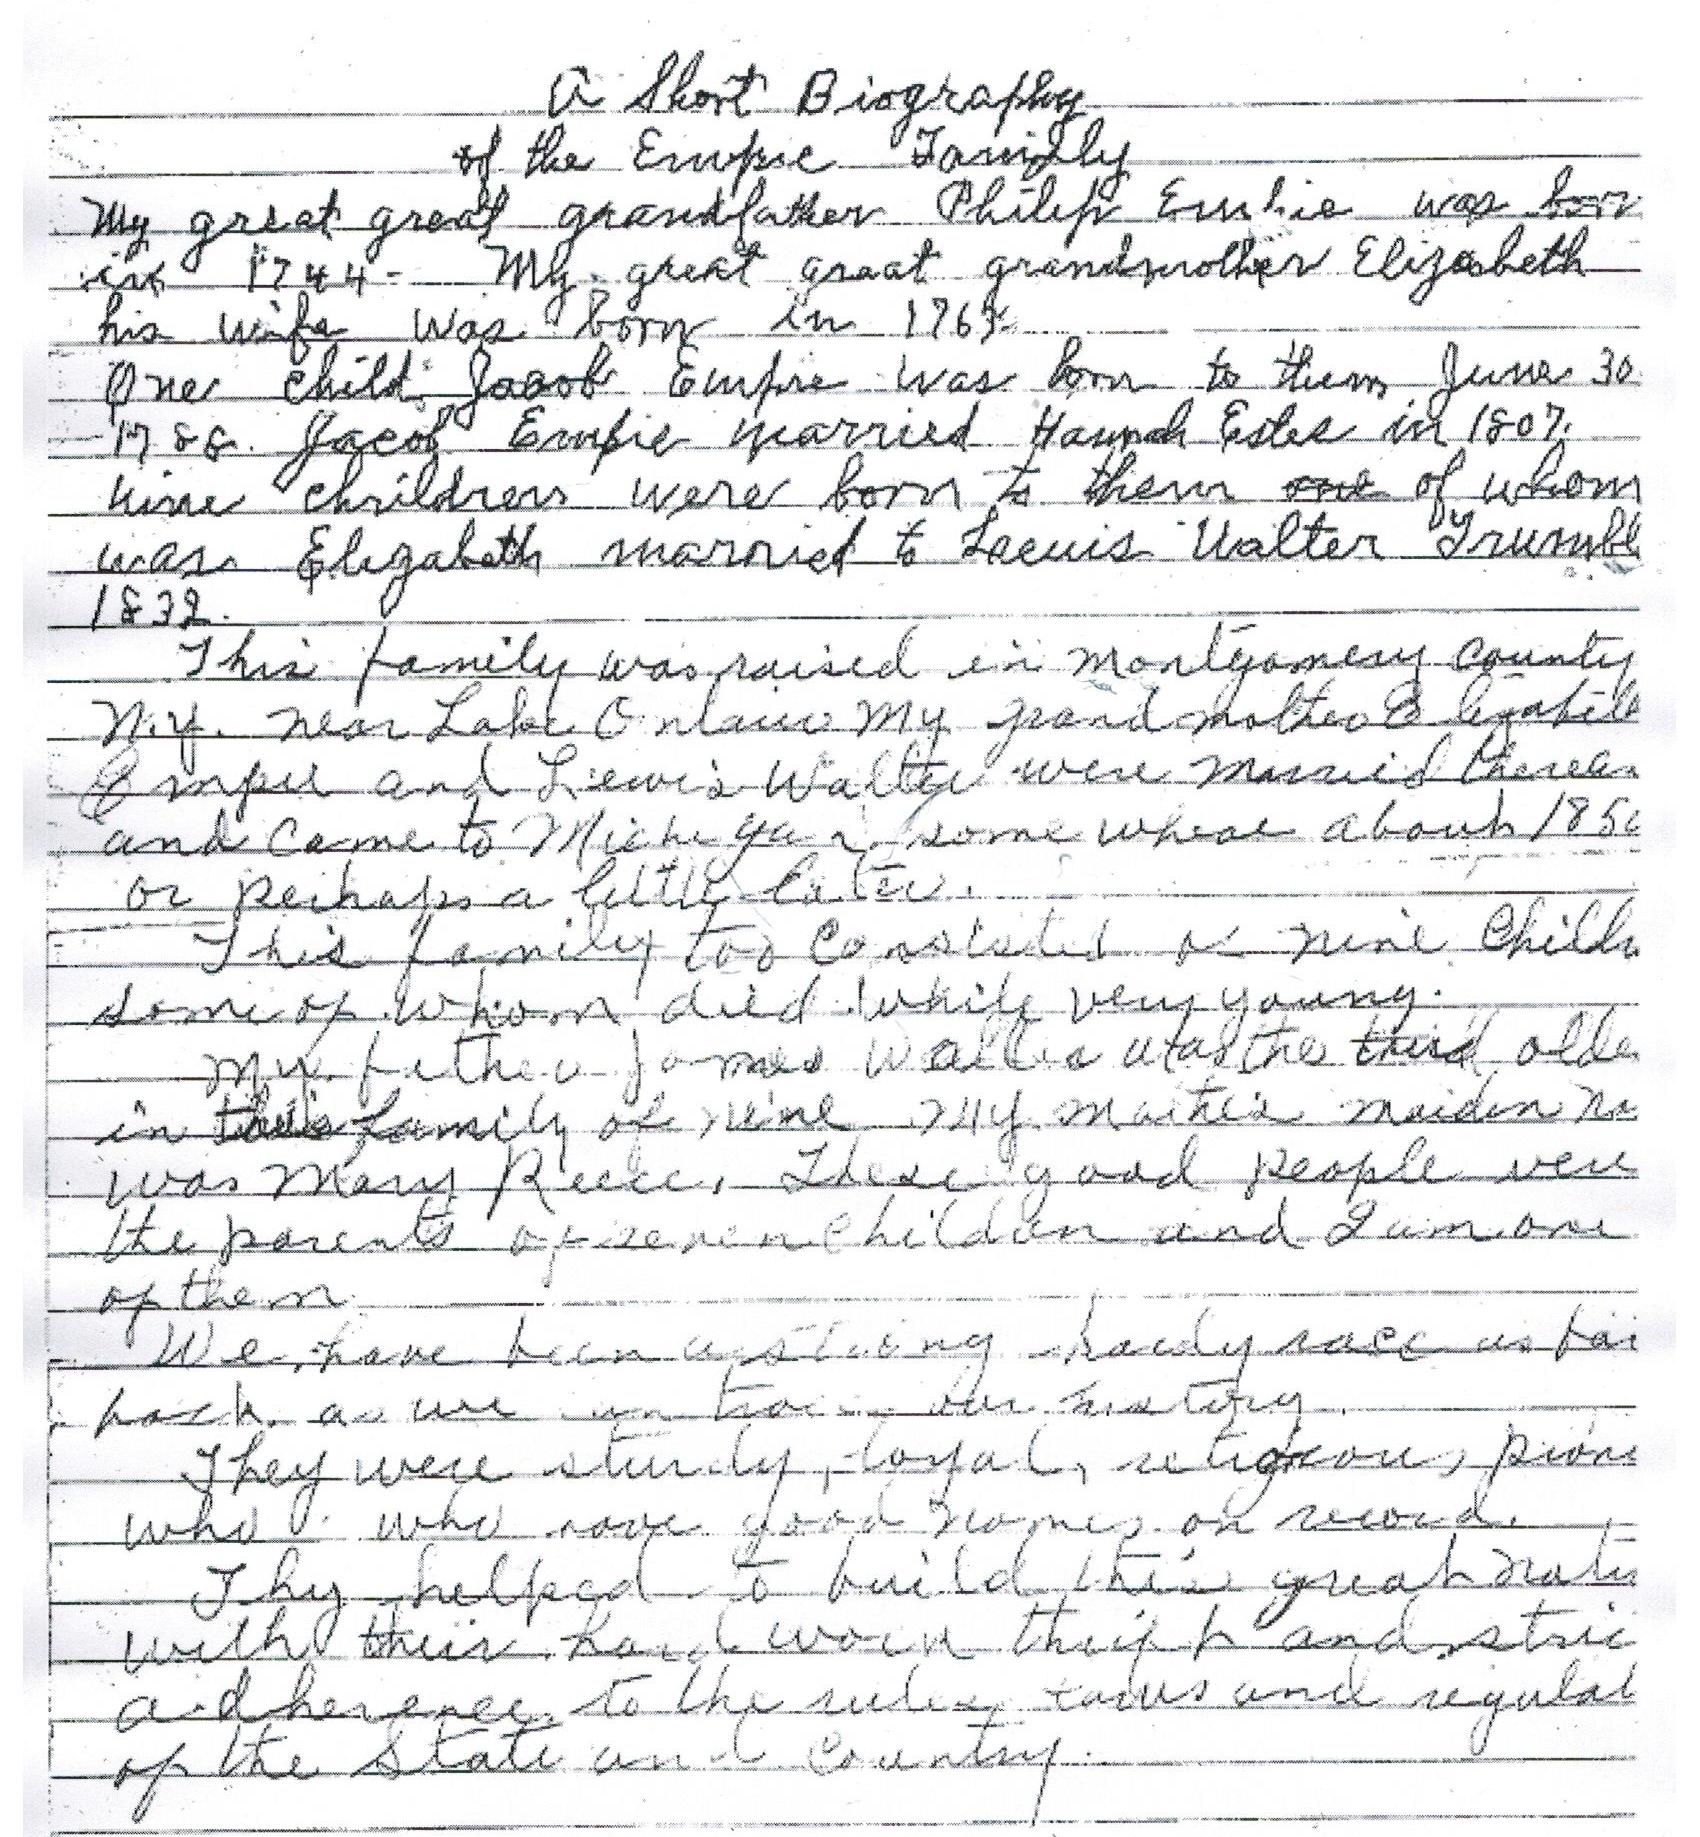 A Short Biography
of the Empie Family
My great great grandfather Philip Empie was born
in 1744- My great great grandmother Elizabeth
his wife was born in
One child Jacob Empie was born to them June 30
1788. Jacob Empie married Hannah Estes in 1807.
Nine children were born to them one of whom
was Elizabeth married to Lewis Walter
1832.
This family was raised in Montgomery County
N.Y. near Lake Ontario My grandmother Elizabeth
Empie and Lewis Walter were married
and came to Michigan some where about 185
or perhaps a little later.
This family too consisted of nine Child
some of whom died while very young.
My father James Walter was the third olde
in this family of nine My mother's maiden na
was Mary Reece. These good people were
the parents of seven children and I am one
of them
We have been a strong hardy race as far
back as we can trace our history.
They were sturdy, loyal, religious, pione
who who have good names on record.
They helped to build this great Natio
with their hard work thrift and stric
adherence to the rules laws and regulat
of the State and Country.